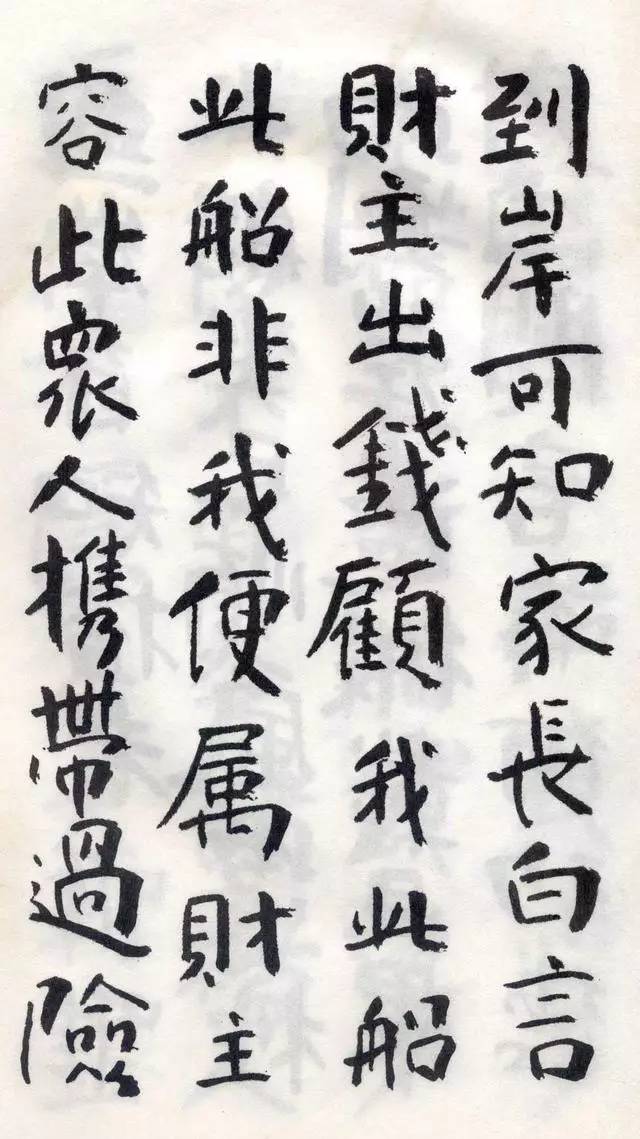 到岸可知家長白言
財主出錢顧我此船
此船非我便属財主
容此眾人携帶過險